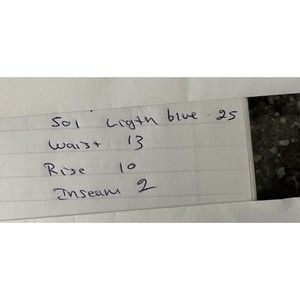 501 Ligth blue . 25
Waist 13
Rise 10
Inseam 2